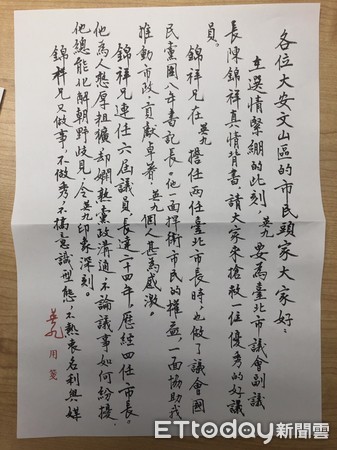 各位大安文山區的市民頭家大家好：
在選情緊繃的此刻，英九要為臺北市議會副議
長陳錦祥真情背書，請大家來搶救一位優秀的好議
員。
錦祥兄在英九擔任兩任臺北市長時，也做了議會國
民黨團八年書記長。他一面捍衛市民的權益，一面協助我
推動市政，貢獻卓著，英九個人甚為感激。
錦祥兄連任六屆議員，長達二十四年，歷經四任市長。
他為人憨厚粗獷，却嫻熟黨政溝通，不論議事如何紛擾，
他總能化解朝野歧見，令英九印象深刻。
錦祥兄只做事，不做秀，不搞意識型態，不熱衷名利與媒
英九用箋
ETtoday新聞雲